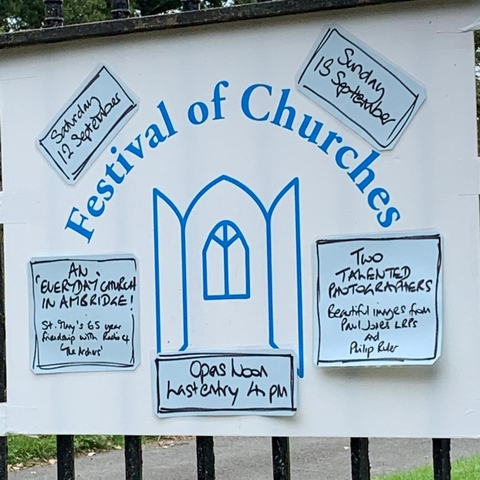 Saturday
12 September
Sunday
13 September
Festival of Churches
AN
'EVERYDAY CHURCH
IN AMBRIDGE'!
St. Mary's 65 year
friendship with Radio 4
'The Archers'
TWO
TALENTED
PHOTOGRAPHERS
Beautiful images from
Paul Jones LRPS
and
Philip
Opens Noon
Last entry 4 pm